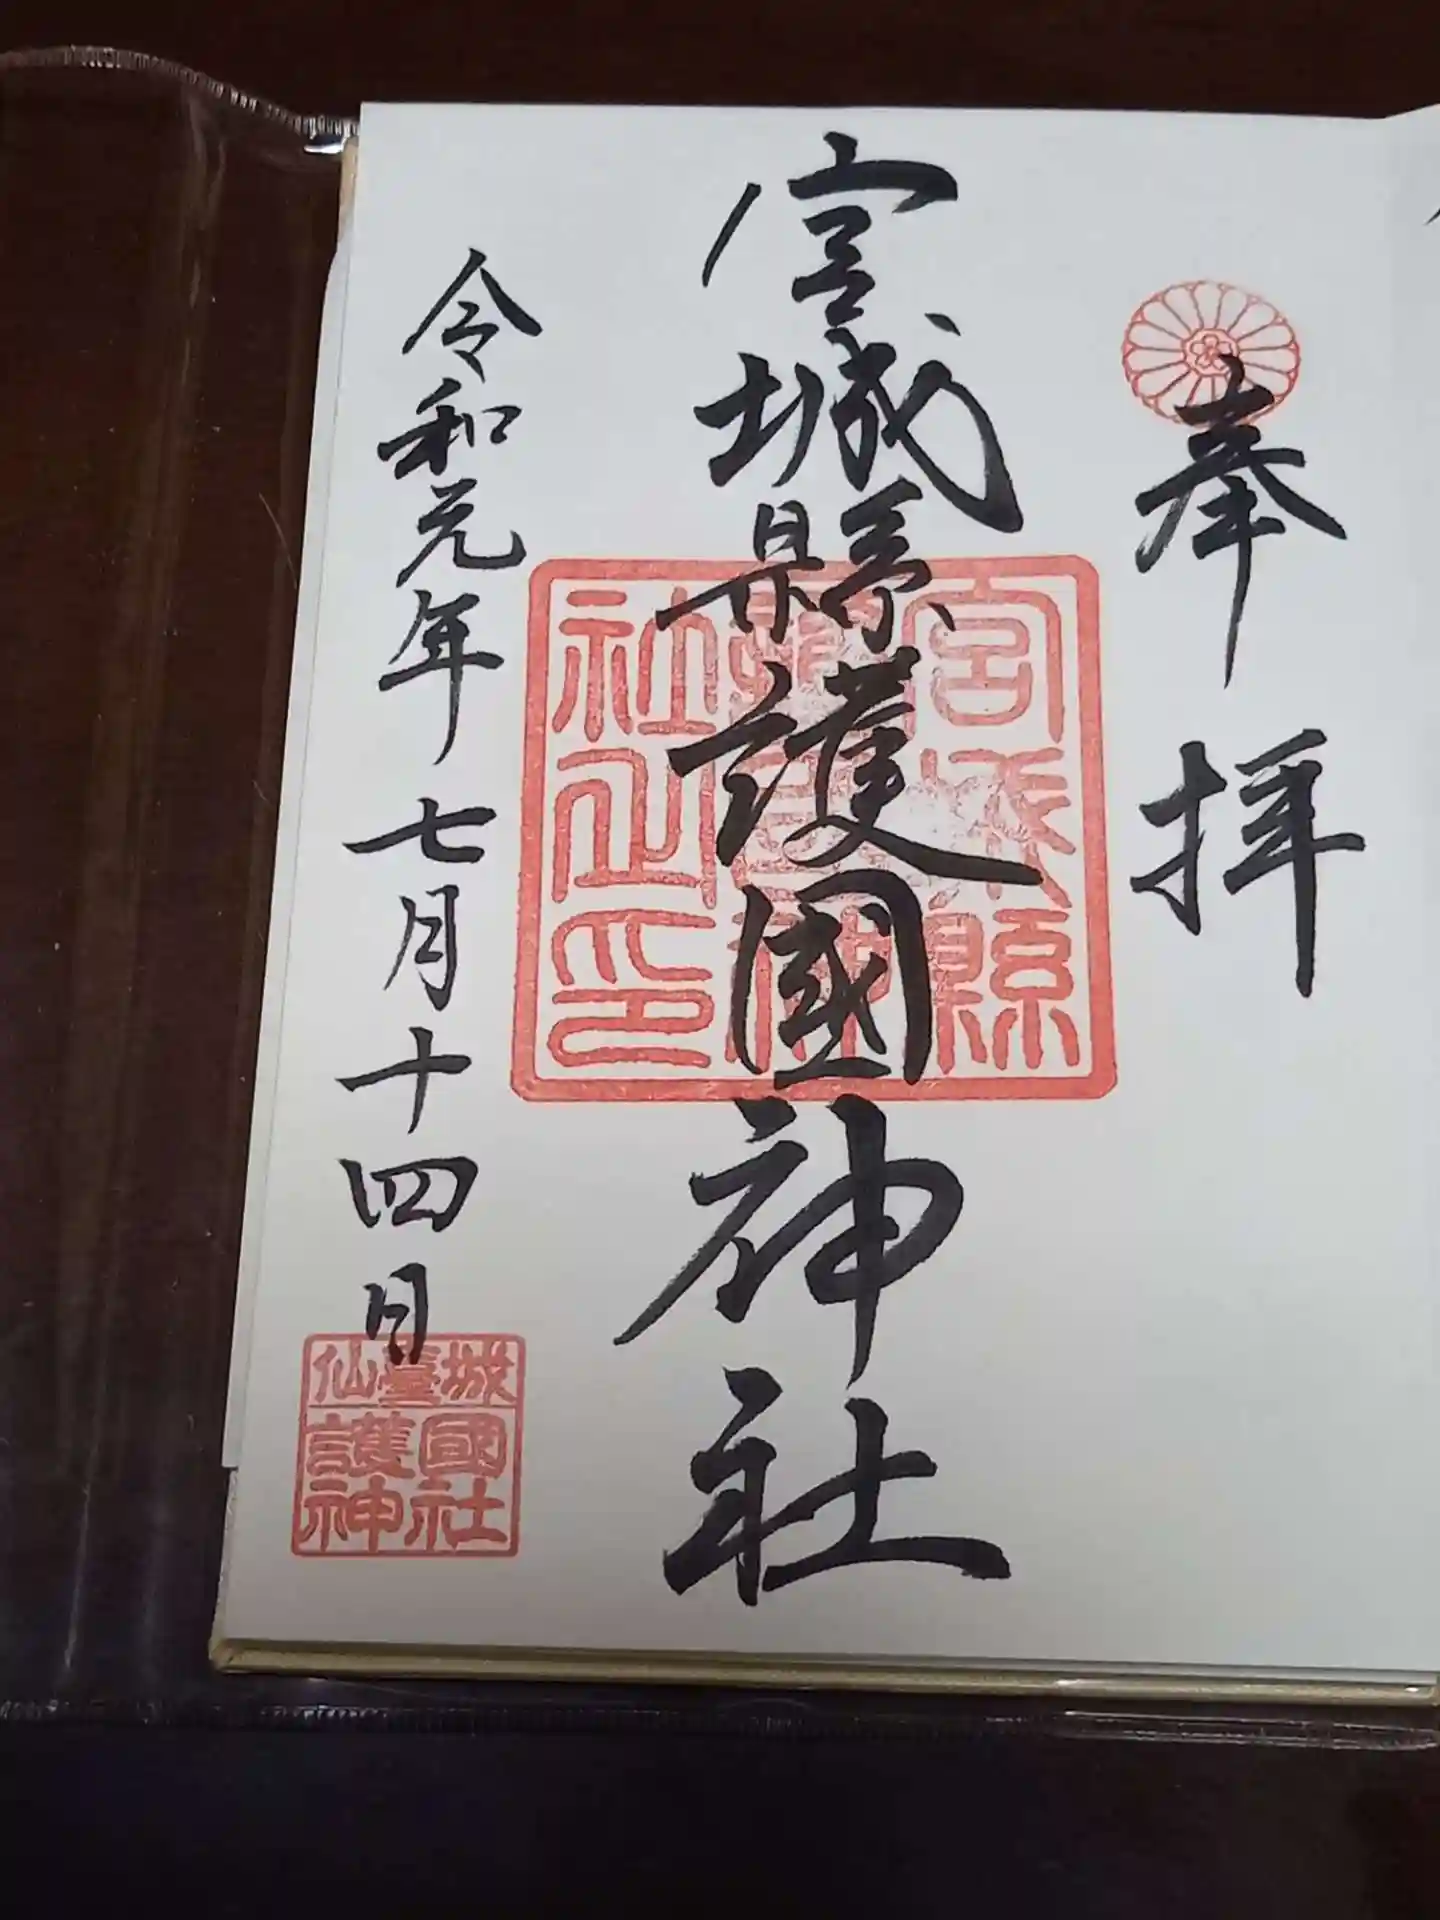 奉拝
宮城縣護國神社
宮城縣
護國神
社之印
令和元年七月十四日
仙臺城
護國
神社